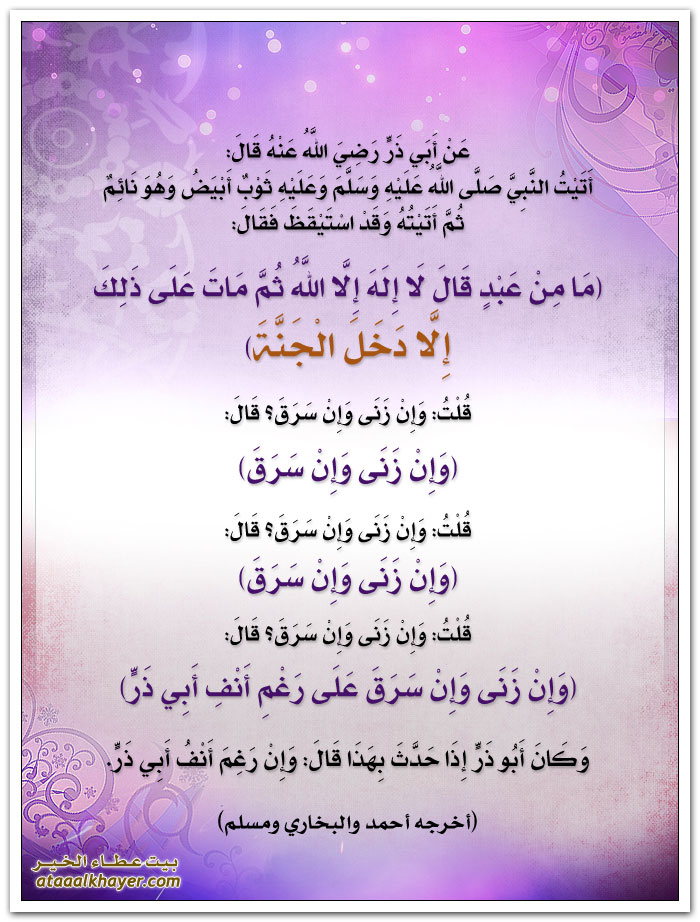 عَنْ أَبِي ذَرٍّ رَضِيَ اللَّهُ عَنْهُ قَالَ:
أَتَيْتُ النَّبِيَّ صَلَّى اللَّهُ عَلَيْهِ وَسَلَّمَ وَعَلَيْهِ ثَوْبٌ أَبْيَضُ وَهُوَ نَائِمٌ
ثُمَّ أَتَيْتُهُ وَقَدْ اسْتَيْقَظَ فَقَالَ:
(مَا مِنْ عَبْدٍ قَالَ لَا إِلَهَ إِلَّا اللَّهُ ثُمَّ مَاتَ عَلَى ذَلِكَ
إِلَّا دَخَلَ الْجَنَّةَ)
قُلْتُ: وَإِنْ زَنَى وَإِنْ سَرَقَ؟ قَالَ:
(وَإِنْ زَنَى وَإِنْ سَرَقَ)
قُلْتُ: وَإِنْ زَنَى وَإِنْ سَرَقَ؟ قَالَ:
(وَإِنْ زَنَى وَإِنْ سَرَقَ)
قُلْتُ: وَإِنْ زَنَى وَإِنْ سَرَقَ؟ قَالَ:
(وَإِنْ زَنَى وَإِنْ سَرَقَ عَلَى رَغْمِ أَنْفِ أَبِي ذَرٍّ)
وَكَانَ أَبُو ذَرٍّ إِذَا حَدَّثَ بِهَذَا قَالَ: وَإِنْ رَغِمَ أَنْفُ أَبِي ذَرٍّ.
(أخرجه أحمد والبخاري ومسلم)
بيت عطاء الخير
ataaalkhayer.com